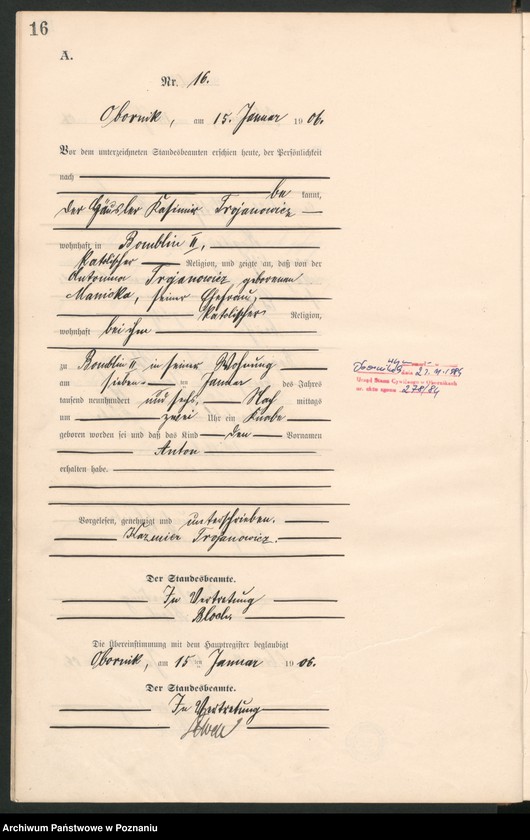 16
A.
Nr. 16.
Obornik, am 15. Januar 1906.
Vor dem unterzeichneten Standesbeamten erschien heute, der Persönlichkeit
nach
be kannt,
der Häusler Kasimir Trojanowicz
wohnhaft in Bomblin II,
katholischer Religion, und zeigte an, daß von der
Antonina Trojanowicz geborenen
Manicka, seiner Ehefrau,
katholischer Religion,
wohnhaft bei ihm
zu Bomblin II in seiner Wohnung
am sieben ten Januar des Jahres
tausend neunhundert und sechs, Nach mittags
um zwei Uhr ein Knabe
geboren worden sei und daß das Kind den Vornamen
Anton
erhalten habe.
Vorgelesen, genehmigt und unterschrieben.
Kazmierz Trojanowicz.
Der Standesbeamte.
In Vertretung
Die Übereinstimmung mit dem Hauptregister beglaubigt
Obornik, am 15 ten Januar 1906.
Der Standesbeamte.
In Vertretung
Urząd Stanu Cywilnego w Obornikach
nr. aktu zgonu 278/84
Archiwum Państwowe w Poznaniu